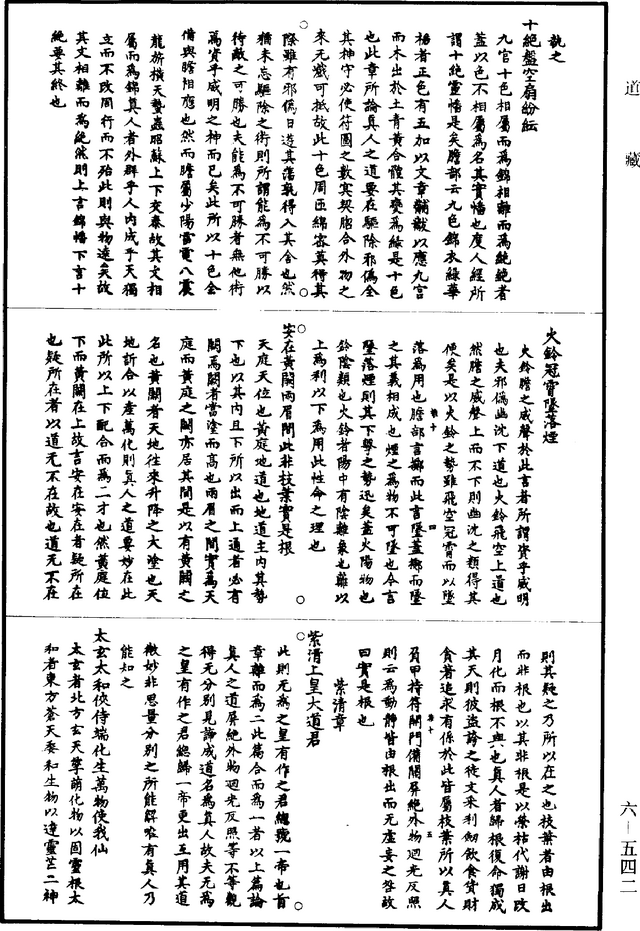 道藏
執之
十絕盤空扇紛紜
九官十色相屬而為錦相離而為絕絕者
蓋以色不相屬為名其實幡也度人經所
謂十絕靈幡是矣膽部云九色錦衣綠華
裙者正色有五加以文章黼黻以應九宮
而木出於土青黃合體其變為綠是十色
也此章所論真人之道要在驅除邪偽全
其神守必使符圖之數寞契脗合外物之
來无巇可抵故此十色周匝綿密莫得其
隙雖有邪偽日遊其藩孰得入其舍也然
猶未忘驅除之術則所謂能為不可勝以
待敵之可勝也夫能為不可勝者無他術
焉資乎威明之神而已矣此所以十色全
備與膽相應也然而膽屬少陽雷電八震
龍旂橫天蟄蟲昭蘇上下交泰故其文相
屬而為錦真人者外群乎人內成乎天獨
立而不改周行而不殆此則與物遠矣故
其文相離而為絕然則上言錦幡下言十
絕要其終也
火鈴冠霄墜落煙
火鈴膽之威聲於此言者所謂資乎威明
也夫邪偽幽沈下道也火鈴飛空上道也
然膽之威聲上而不下則幽沈之類得其
便矣是以火鈴之勢雖飛空冠霄而以墜
落為用也膽部言擲而此言墜蓋擲而墜
之其義相成也煙之為物不可墜也今言
墜落煙則其下擊之勢迅矣蓋火陽物也
鈴陰類也火鈴者陽中有陰離象也離以
上為利以下為用此性命之理也
安在黃闕兩眉間此非枝葉實是根
天庭天位也黃庭地道也地道主內其勢
下也以其內且下所以出而上通者必有
闕焉闕者當塗而高也兩眉之間實為天
庭而黃庭之闕亦居其間是以有黃闕之
名也黃闕者天地往來升降之大塗也天
地訢合以產萬化則真人之道要妙在此
此所以上下配合而為二才也然黃庭位
下而黃闕在上故言安在安在者疑所在
也疑所在者以道无不在故也道无不在
則其疑之乃所以在之也枝葉者由根出
而非根也以其非根是以榮枯代謝日改
月化而根不與也真人者歸根復命獨成
其天則彼盜誇之徒文采利劒飲食貨財
貪著追求有係於此皆屬枝葉所以真人
負甲持符開門備關屏絕外物迴光反照
則云為動靜皆由根出而无虛妄之咎故
曰實是根也
紫清章
紫清上皇大道君
此則无為之皇有作之君總號一帝也旨
章離而為二此篇合而為一者以上篇論
真人之道屏絕外物迴光反照等不等觀
得无分別見諦成道名為真人故夫无為
之皇有作之君總歸一帝更出互用其道
微妙非思量分別之所能解唯有真人乃
能知之
太玄太和俠侍端化生萬物使我仙
太玄者北方玄天孳萌化物以固靈根太
和者東方蒼天委和生物以達靈芒二神
六－五四二